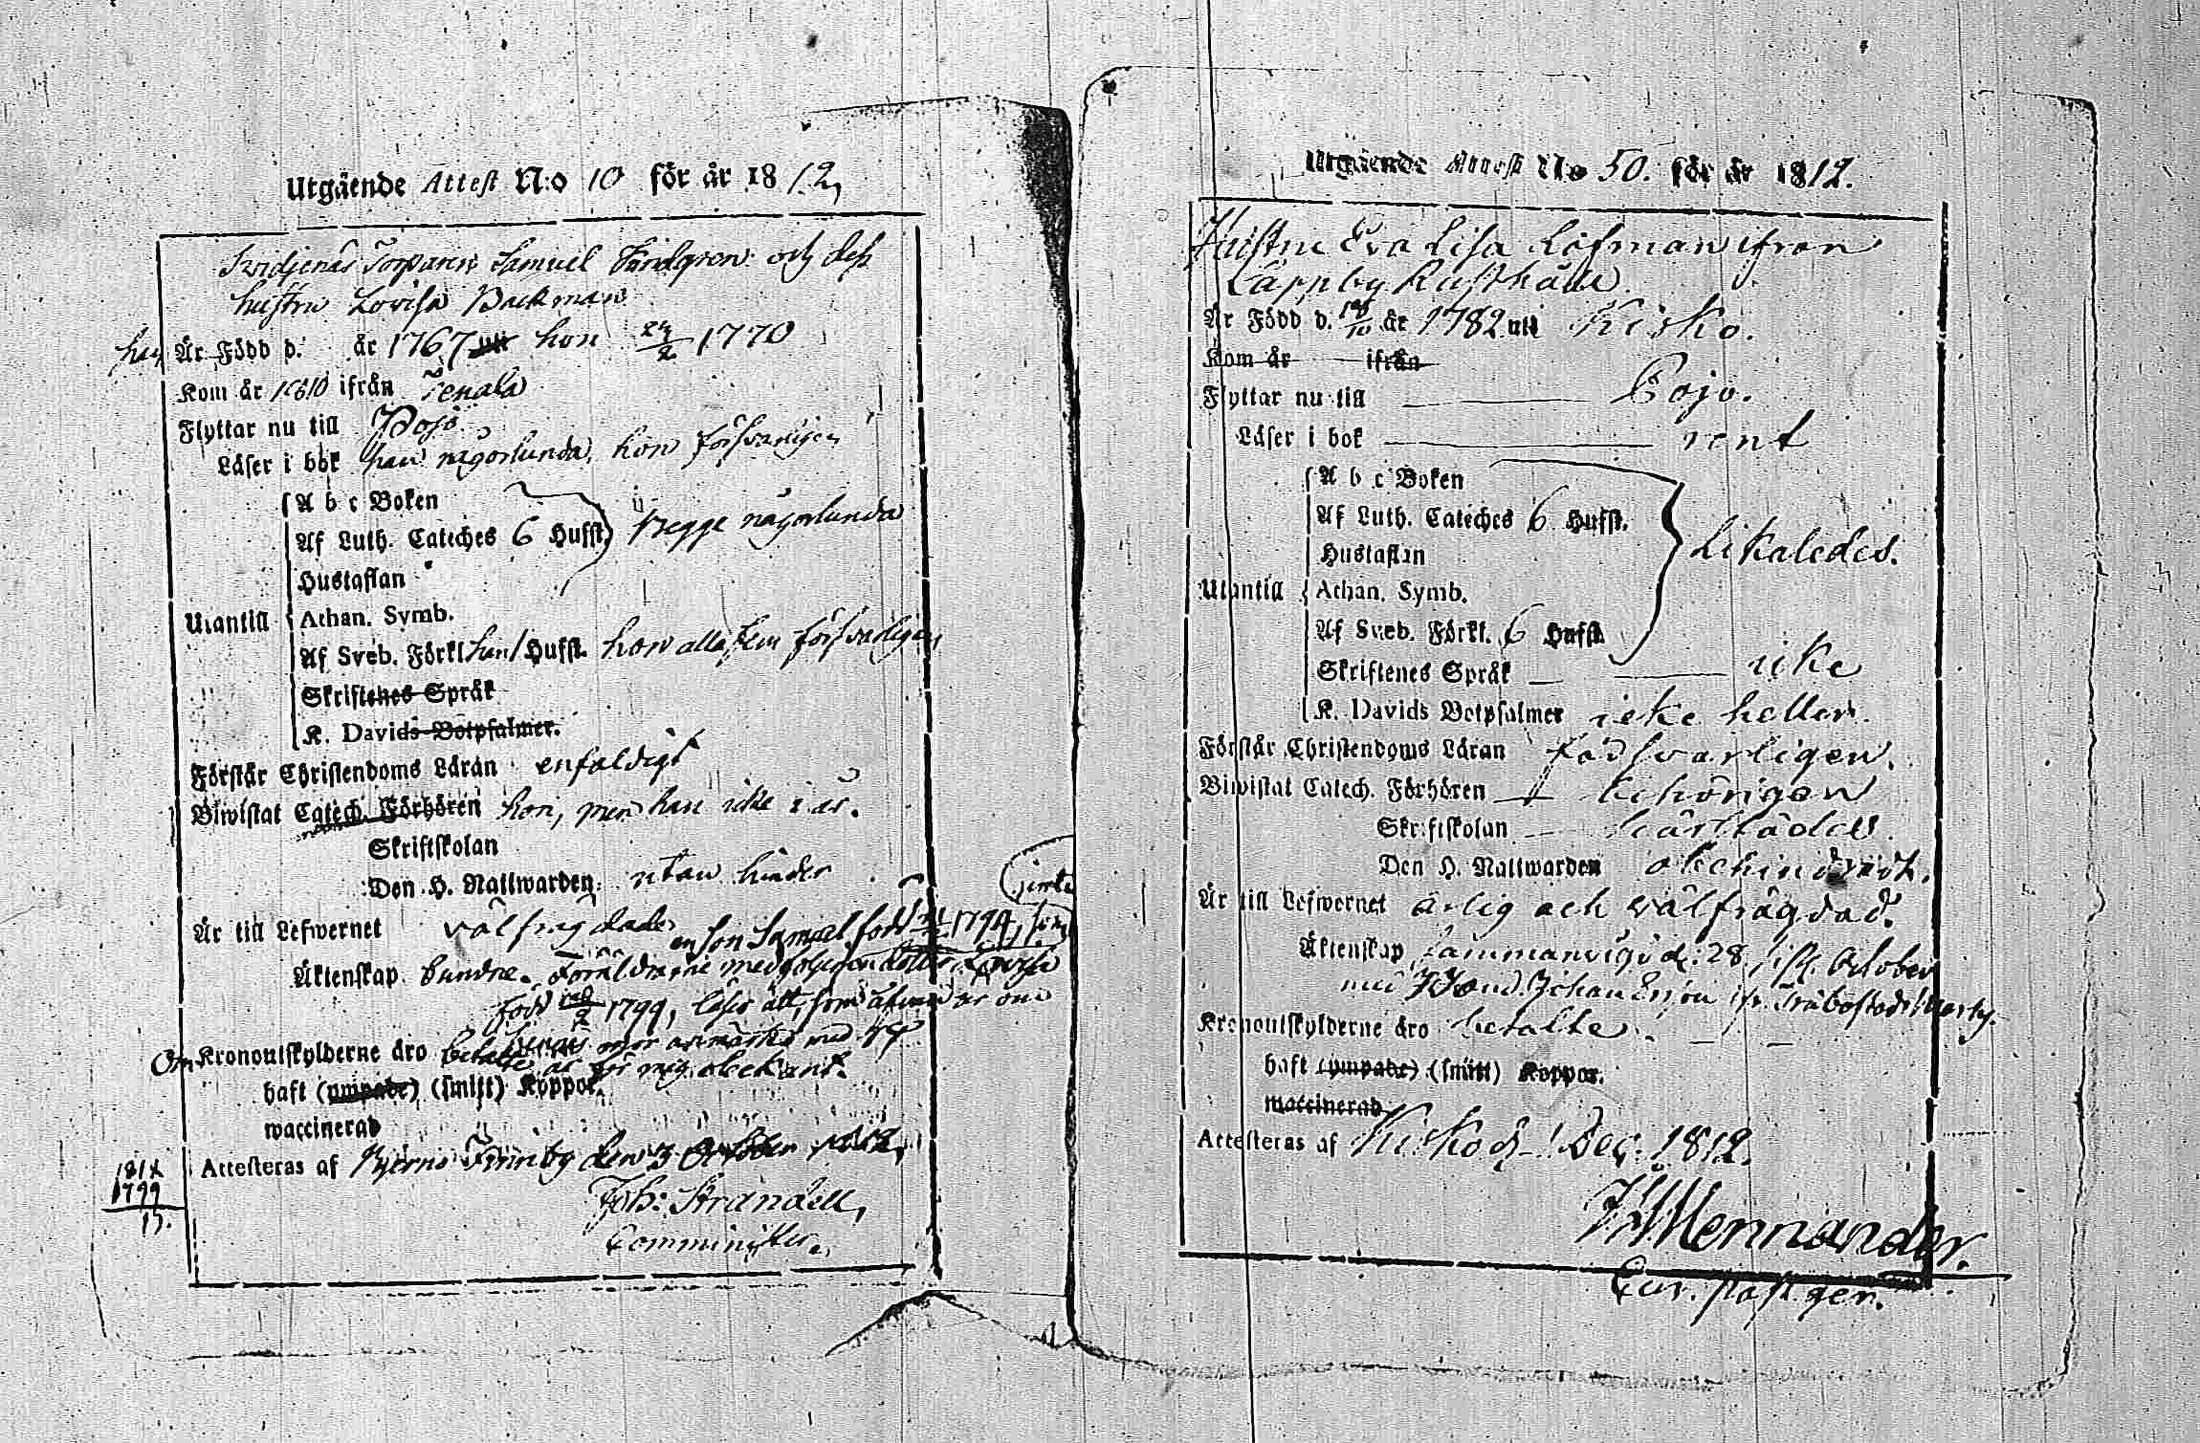 Utgående Attest N:o 10 för år 1812,
Torparen Samuel och dess
hustru Lovisa Backman
han Är Född d. år 1767 uti hon 24/2 1770
Kom år 1810 ifrån Tenala
Flyttar nu till Pojo
Läser i bok han någorlunda, hon försvarligen
A b c Boken
Af Luth. Cateches 6 Hufst. Begge någorlunda
Hustaflan
Utantill Athan. Symb.
Af Sveb. Förkl. han 1 Hufst. hon alla fem försvarligen
Skriftenes Språk
K. Davids Botpsalmer.
Förstår Christendoms Läran enfaldigt
Biwistat Catech. Förhören hon, men han icke i år.
Skriftskolan
Den H. Nattwarden utan hinder
Är till Lefwernet välfrägdade,
en son Samuel född 1794, som
Äktenskap bundne. Föräldrarne medföljer en dotter Lovisa
född 1799, läser allt, som är om
Kronoutskylderne äro betalte
mor anmärkt med
Om är för mig obekant.
haft (ympade) (smitt) Koppor.
waccinerad
Attesteras af Bjerno Finnby den 3 October 1812,
1812
1799
13.
Joh: Strandell,
Comminister.
Utgående Attest N:o 50. för år 1812.
Hustru Eva Lisa Löfman ifrån
Lappby Rusthåll.
Är Född d. 18/10 år 1782 uti Kisko.
Kom år ifrån
Flyttar nu till Pojo.
Läser i bok rent
A b c Boken
Af Luth. Cateches 6 Hufst.
Hustaflan Likaledes.
Utantill Athan. Symb.
Af Sveb. Förkl. 6 Hufst.
Skriftenes Språk icke
K. Davids Botpsalmer icke heller.
Förstår Christendoms Läran försvarligen.
Biwistat Catech. Förhören behörigen
Skriftskolan härstädes
Den H. Nattwarden obehindradt.
Är till Lefwernet ärlig och välfrägdad.
Äktenskap sammanvigd d. 28 sistl. October
med Johan Ersson ifr.
Kronoutskylderne äro betalte.
haft (ympade) (smitt) Koppor.
waccinerad
Attesteras af Kisko d. 1 Dec. 1812.
Mennander.
Cur. past. ger.